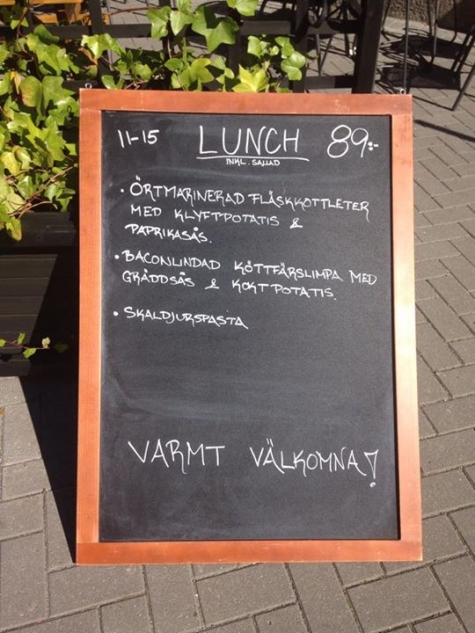 11-15 LUNCH 89:-
INKL. SALLAD
• ÖRTMARINERAD FLÄSKKOTLETTER
MED KLYFTPOTATIS &
PAPRIKASÅS.
• BACONLINDAD KÖTTFÄRSLIMPA MED
GRÄDDSÅS & KOKT POTATIS.
• SKALDJURSPASTA
VARMT VÄLKOMNA!